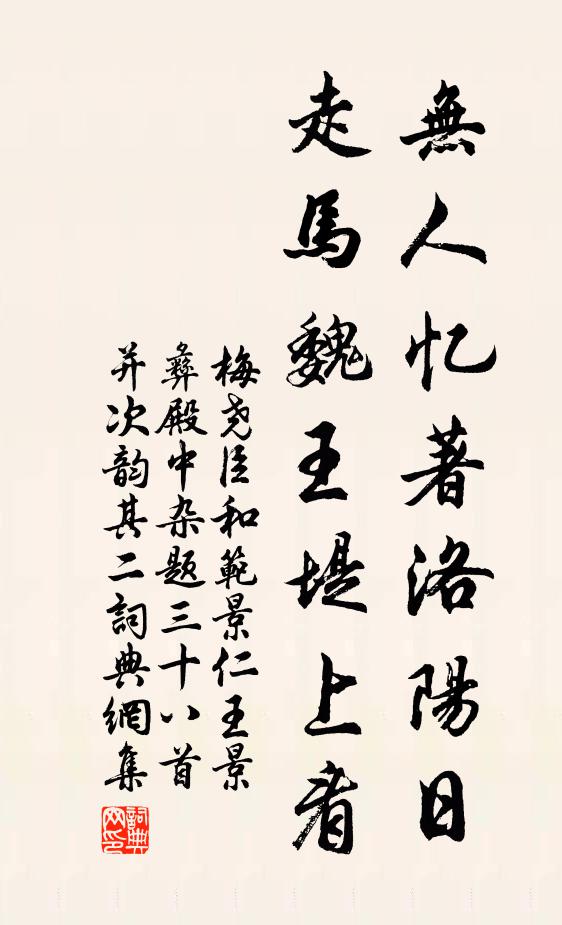 無人忆著洛陽日
走馬魏王堤上看
梅尧臣和範景仁王景
彝殿中杂題三十八首
并次韵其二詞典網集
詞典
网印